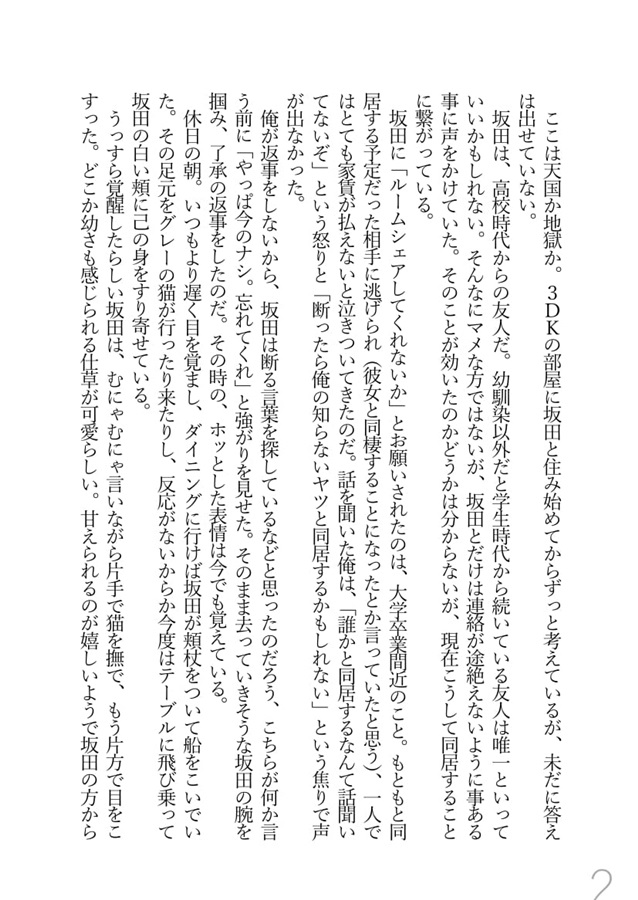 ここは天国か地獄か。３ＤＫの部屋に坂田と住み始めてからずっと考えているが、未だに答え
は出せていない。
坂田は、高校時代からの友人だ。幼馴染以外だと学生時代から続いている友人は唯一といって
いいかもしれない。そんなにマメな方ではないが、坂田とだけは連絡が途絶えないように事ある
事に声をかけていた。そのことが効いたのかどうかは分からないが、現在こうして同居すること
に繋がっている。
坂田に「ルームシェアしてくれないか」とお願いされたのは、大学卒業間近のこと。もともと同
居する予定だった相手に逃げられ（彼女と同棲することになったとか言っていたと思う）、一人で
はとても家賃が払えないと泣きついてきたのだ。話を聞いた俺は、「誰かと同居するなんて話聞い
てないぞ」という怒りと「断ったら俺の知らないヤツと同居するかもしれない」という焦りで声
が出なかった。
俺が返事をしないから、坂田は断る言葉を探しているなどと思ったのだろう、こちらが何か言
う前に「やっぱ今のナシ。忘れてくれ」と強がりを見せた。そのまま去っていきそうな坂田の腕を
掴み、了承の返事をしたのだ。その時の、ホッとした表情は今でも覚えている。
休日の朝。いつもより遅く目を覚まし、ダイニングに行けば坂田が頬杖をついて船をこいでい
た。その足元をグレーの猫が行ったり来たりし、反応がないからか今度はテーブルに飛び乗って
坂田の白い頬に己の身をすり寄せている。
うっすら覚醒したらしい坂田は、むにゃむにゃ言いながら片手で猫を撫で、もう片方で目をこ
すった。どこか幼さも感じられる仕草が可愛らしい。甘えられるのが嬉しいようで坂田の方から
2